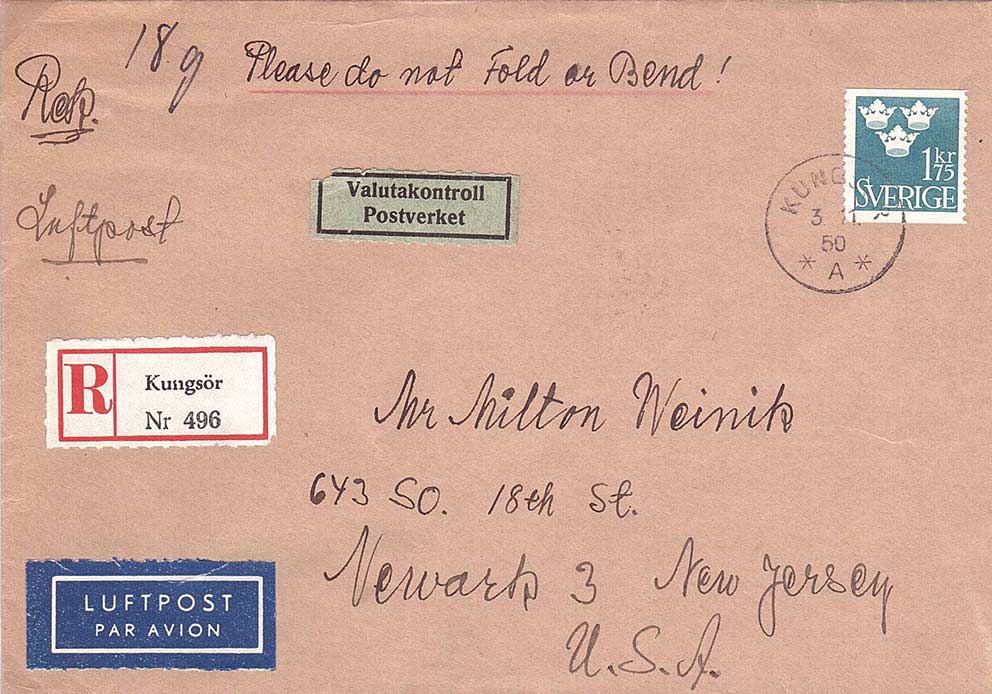 18 g
Please do not Fold or Bend!
Rek.
Luftpost
Valutakontroll
Postverket
1 kr
75
SVERIGE
KUNGS
3. 11.
50
* A *
R
Kungsör
Nr 496
Mr Milton Weinik
643 So. 18th St.
Newark 3 New Jersey
U.S.A.
LUFTPOST
PAR AVION